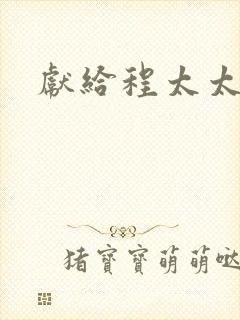 獻給程太太
猪寶寶萌萌哒